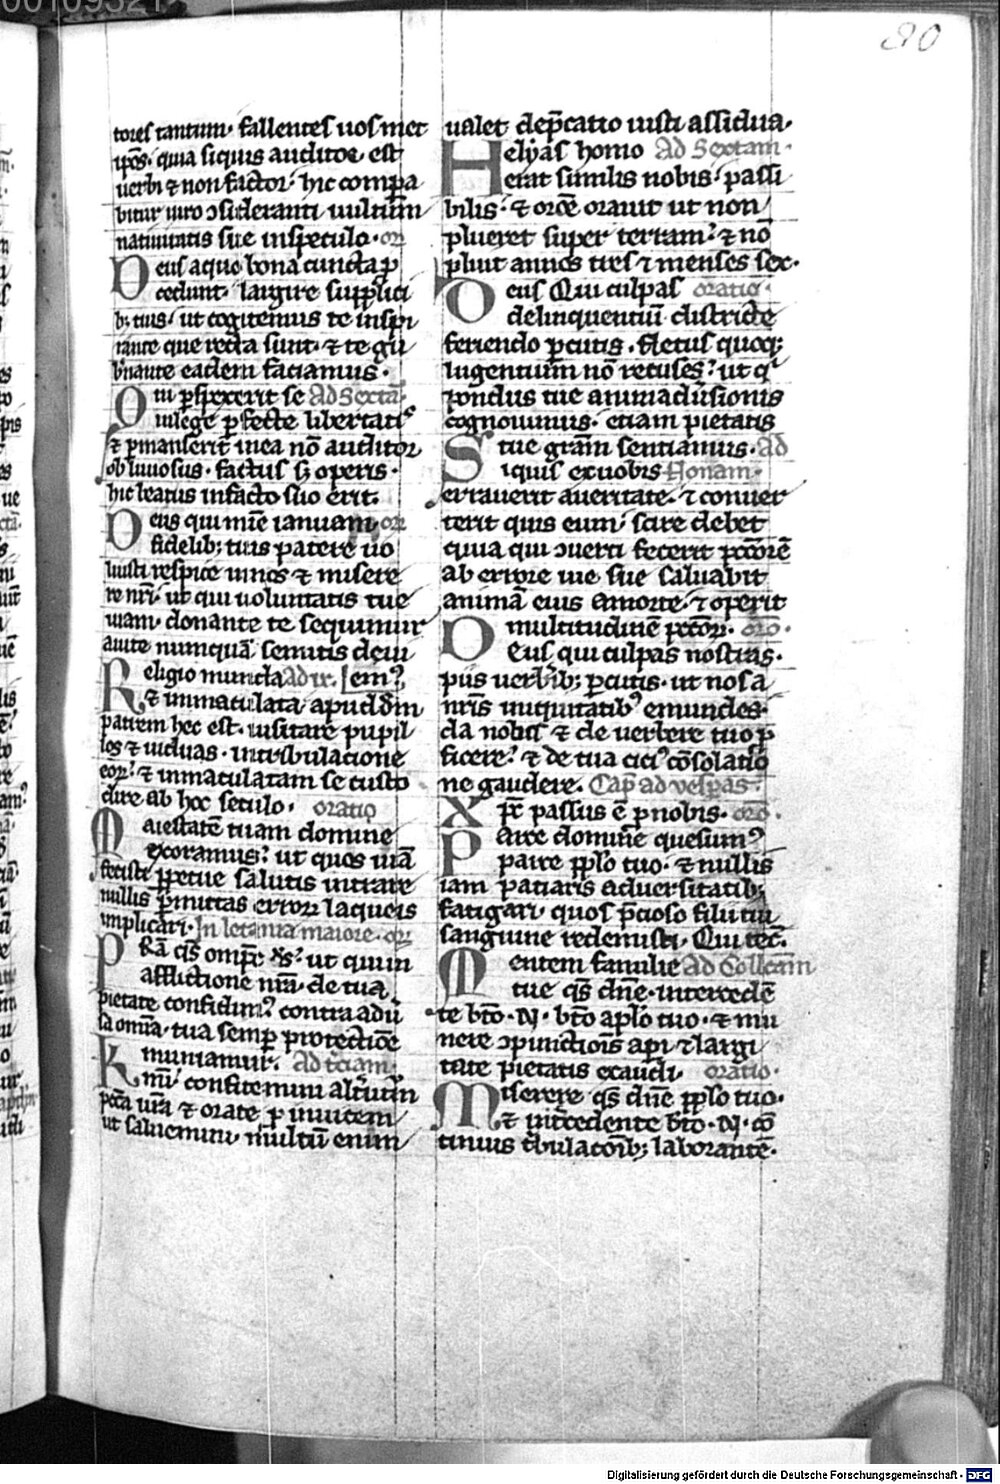 00109321
90
tores tantum· fallentes uosmet
ip̄os· quia siquis auditor est
uerbi ⁊ non factor· hic compa
bitur uiro ↄsideranti uultum
natiuitatis sue inspeculo· or̄
Deus aquo bona cuncta p̄
cedunt· largire supplici
b; tuis· ut cogitemus te inspi
rante que recta sunt· ⁊ te gu
b̄nante eadem faciamus·
Qui p̄spexerit se Ad Sextā
inlege p̄fecte libertatis
⁊ p̄manserit inea nō auditor
obliuiosus· factus s; operis·
hic beatus infacto suo erit·
Deus qui mīe ianuam or̄
fidelib; tuis patere uo
luisti respice innos ⁊ misere
re nr̄i· ut qui uoluntatis tue
uiam· donante te sequimur
auite numquā semitis deui
Religio munda Ad ix· em᷒
⁊ immaculata apud dm̄
patrem hec est· uisitare pupil
los ⁊ uiduas· intribulatione
eor᷒· ⁊ inmaculatam se custo
dire ab hoc seculo· oratio
Maiestatē tuam domine
exoramus· ut quos uiā
feciste p̄petue salutis intrare
nullis p̄mittas error᷒ laqueis
implicari· In letania maiore· or̄
Prā qs̄ omp̄c ds̄· ut quiin
afflictione nr̄a· de tua
pietate confidim᷒ contra adū
sa omīa· tua semp̄ protectiōe
muniamur· Ad tc̄iam
Kmi· confitemini alt̄utr̄m
pc̄cā ur̄a ⁊ orate p̄ inuicem
ut saluemini· multū enim
ualet dep̄catio iusti assidua·
Helyas homo Ad Sextam·
erat similis nobis· passi
bilis· ⁊ orōe orauit ut non
plueret super terram· ⁊ nō
pluit annos tres ⁊ menses sex·
Deus Qui culpas oratio·
delinquentiū districte
feriendo p̄cutis· fletus quoq;
lugentium nō recuses· ut q̄
pondus tue animadus̄ionis
cognouimus· etiam pietatis
tue grām sentiamus· Ad
Siquis exuobis Nonam·
errauerit aueritate· ⁊ conuer
terit quis eum· scire debet
quia qui ↄuerti fecerit pc̄cōrē
ab errore uie sue saluabit
animā eius amorte· ⁊ operit
multitudinē pc̄cōr᷒· orō·
Deus qui culpas nostras·
piis uerberib; p̄cutis· ut nos a
nr̄is iniquitatib᷒ emundes·
da nobis ⁊ de uerbere tuo p̄
ficere· ⁊ de tua cici᷒ cōsolatio
ne gaudere· Cap̄ ad uesp̄as·
Xp̄c passus ē p̄nobis· orō·
Parce domine quesum᷒
parce pp̄lo tuo· ⁊ nullis
iam patiaris aduersitatib;
fatigari· quos p̄cioso filii tui
sanguine redemisti· Qui tec̄·
Mentem familie Ad Collc̄am
tue qs̄ dn̄e· intercedē
te btō· N· btō aplō tuo· ⁊ mu
nere ↄpunctiois ap̄i ⁊ largi
tate pietatis exaudi· oratio·
Miserere qs̄ dn̄e pp̄lo tuo·
⁊ int̄cedente btō· N· cō
tinuis t̄bulatōib; laborantē·
Digitalisierung gefördert durch die Deutsche Forschungsgemeinschaft - DFG